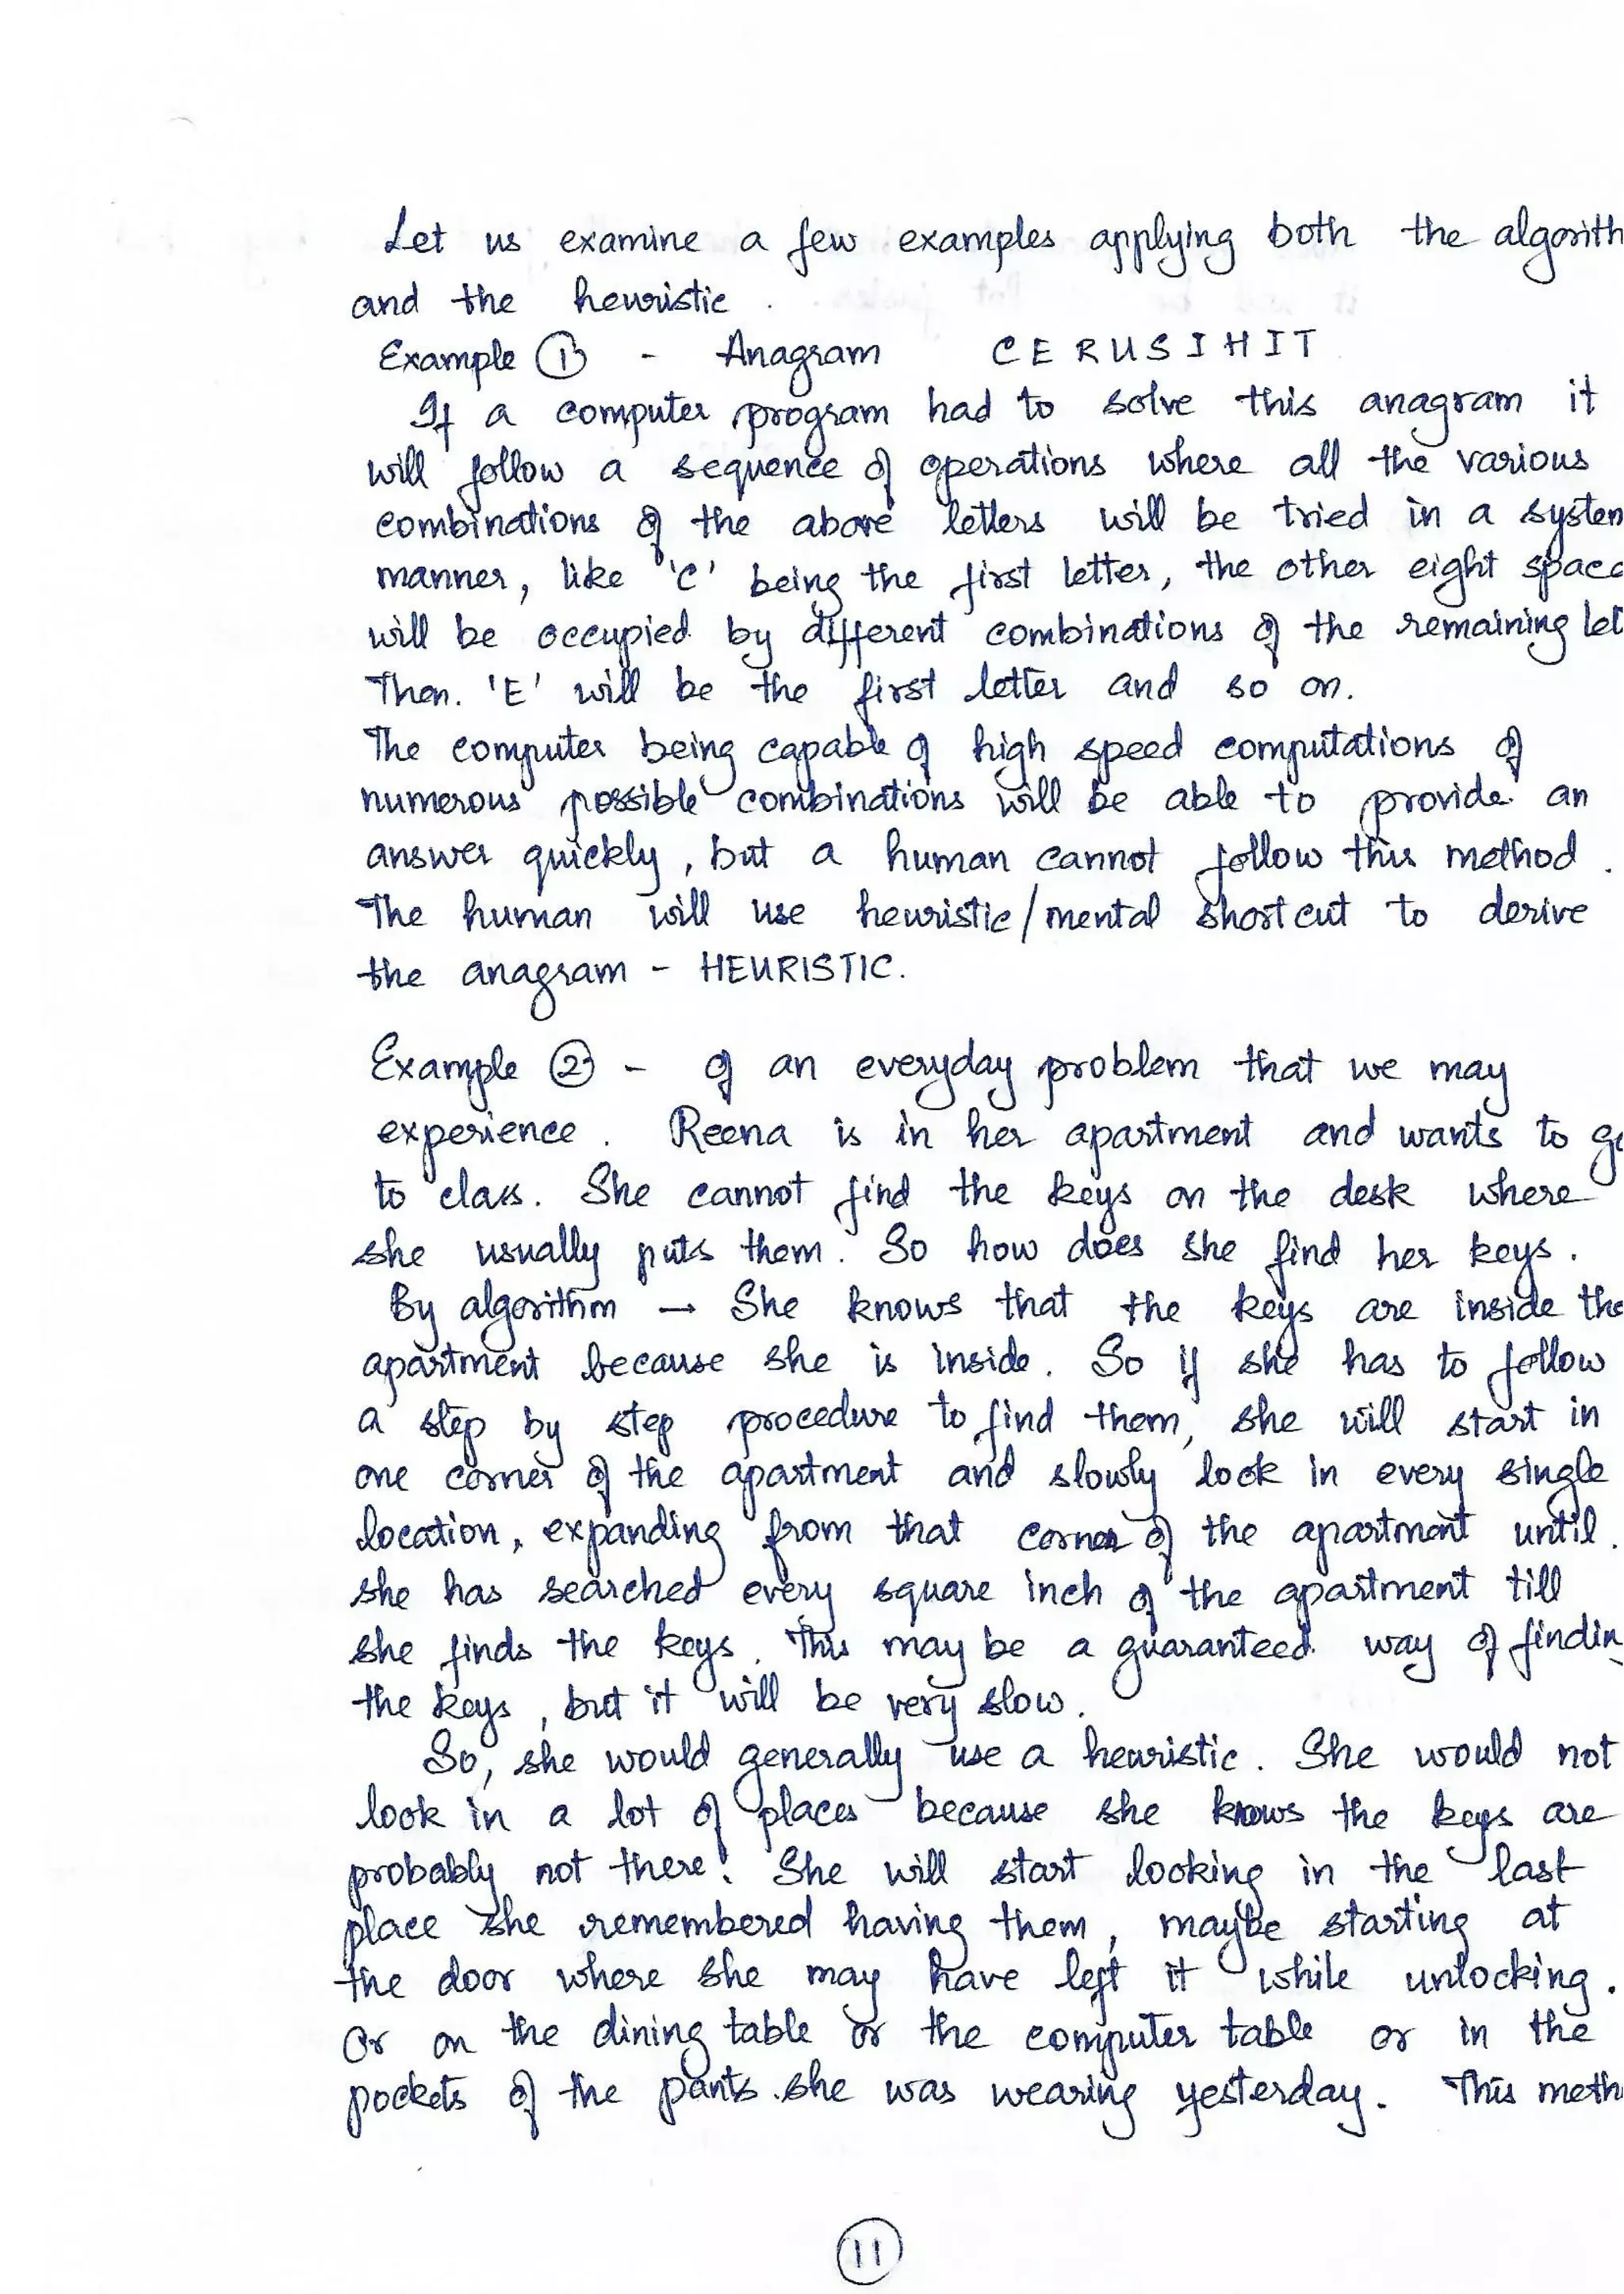 Let us examine a few examples applying both the algorith
and the heuristic.
Example ① - Anagram CERUSIHIT
If a computer program had to solve this anagram it
will follow a sequence of operations where all the various
combinations of the above letters will be tried in a system
manner, like 'C' being the first letter, the other eight space
will be occupied by different combinations of the remaining let
Then. 'E' will be the first letter and so on.
The computer being capable of high speed computations of
numerous possible combinations will be able to provide an
answer quickly, but a human cannot follow this method.
The human will use heuristic/mental shortcut to derive
the anagram - HEURISTIC.
Example ② - of an everyday problem that we may
experience. Reena is in her apartment and wants to go
to class. She cannot find the keys on the desk where
she usually puts them. So how does she find her keys.
By algorithm → She knows that the keys are inside the
apartment because she is inside. So if she has to follow
a step by step procedure to find them, she will start in
one corner of the apartment and slowly look in every single
location, expanding from that corner of the apartment until.
she has searched every square inch of the apartment till
she finds the keys. This may be a guaranteed way of findin
the keys, but it will be very slow.
So, she would generally use a heuristic. She would not
look in a lot of places because she knows the keys are
probably not there. She will start looking in the last
place she remembered having them, maybe starting at
the door where she may have left it while unlocking.
Or on the dining table or the computer table or in the
pockets of the pants she was wearing yesterday. This meth
11